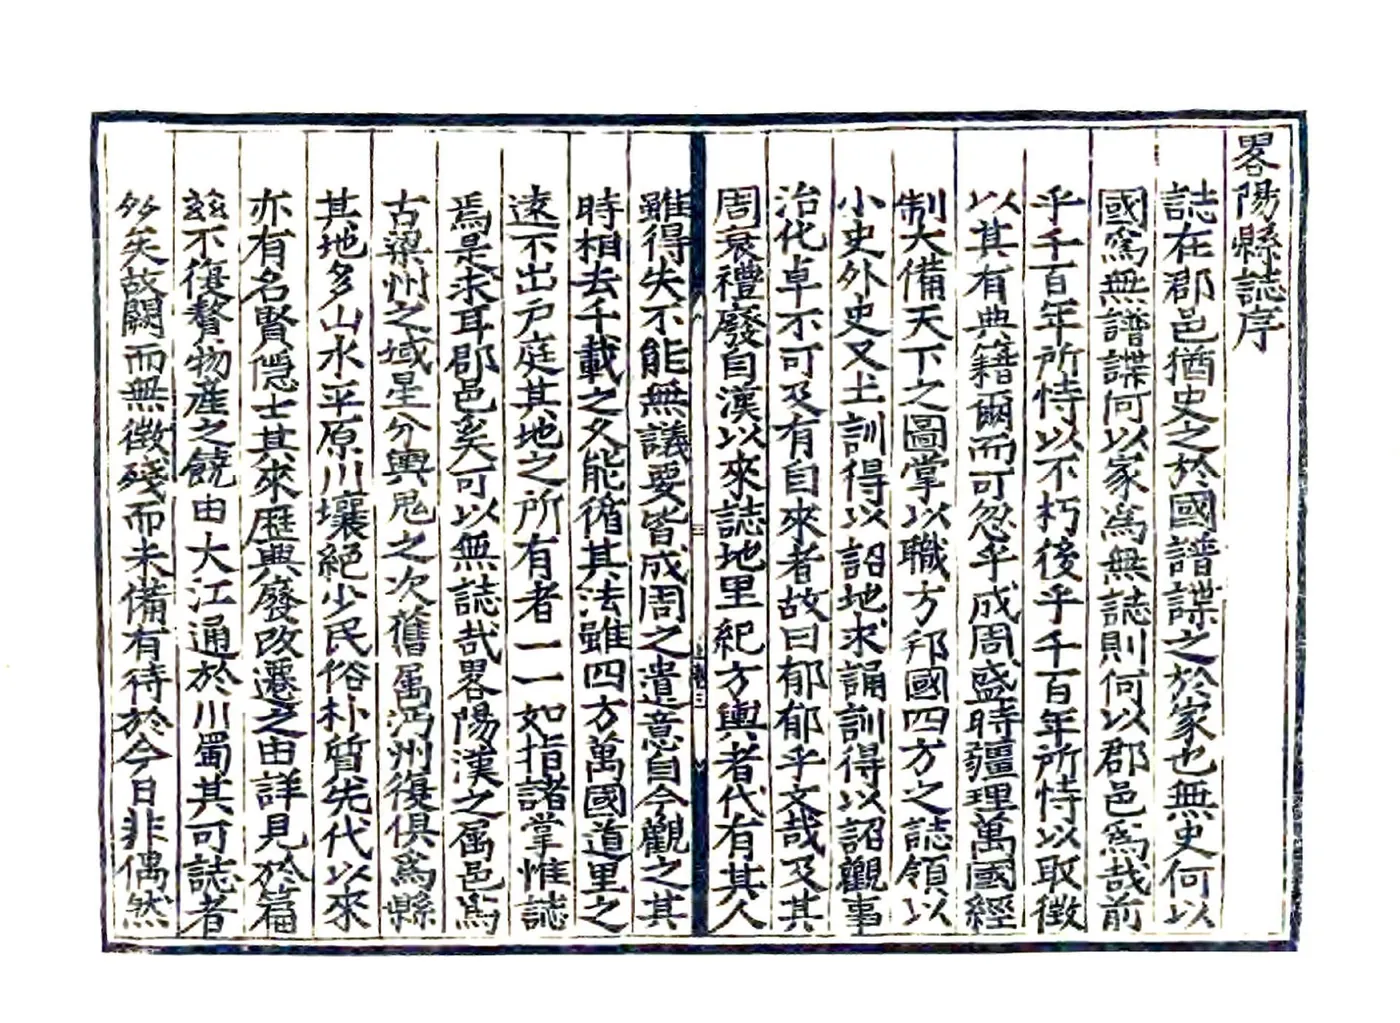 畧陽縣誌序
誌在郡邑猶史之於國譜諜之於家也無史何以
國爲無譜諜何以家爲無誌則何以郡邑爲哉前
乎千百年所恃以不朽後乎千百年所恃以取徵
以其有典籍爾而可忽乎成周盛時疆理萬國經
制大備天下之圖掌以職方邦國四方之誌領以
小史外史又土訓得以詔地求誦訓得以詔觀事
治化卓不可及有自來者故曰郁郁乎文哉及其
周衰禮廢自漢以來誌地里紀方輿者代有其人
雖得失不能無議要皆成周之遺意自今觀之其
時相去千載之久能循其法雖四方萬國道里之
遠不出戶庭其地之所有者一一如指諸掌惟誌
焉是求耳郡邑奚可以無誌哉畧陽漢之属邑爲
古梁州之域星分輿鬼之次舊属沔州復俱爲縣
其地多山水平原川壤絕少民俗朴質先代以來
亦有名賢隱士其來歷與廢改遷之由詳見於篇
玆不復贅物產之饒由大江通於川蜀其可誌者
多矣故闕而無徵殘而未備有待於今日非偶然